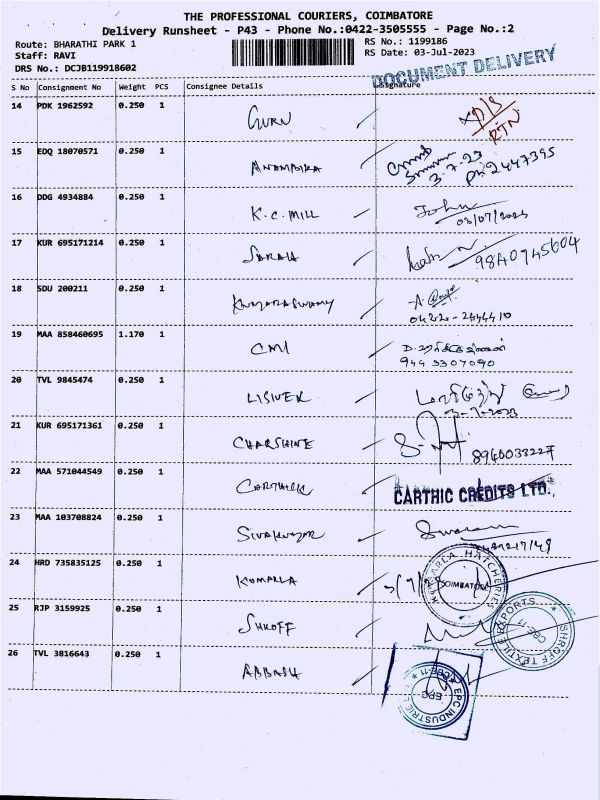 THE PROFESSIONAL COURIERS, COIMBATORE
Delivery Runsheet - P43 - Phone No.:0422-3505555 - Page No.:2
Route: BHARATHI PARK 1 RS No.: 1199186
Staff: RAVI RS Date: 03-Jul-2023
DRS No.: DCJB119918602
DOCUMENT DELIVERY
S No Consignment No Weight PCS Consignee Details Signature
14 PDK 1962592 0.250 1 GURN RTN
15 EDQ 18070571 0.250 1 3.7.23 PH 2447395
16 DDG 4934884 0.250 1 K.C. MILL John
03/07/2023
17 KUR 695171214 0.250 1 SARALA 9840745604
18 SDU 200211 0.250 1 KUMARASWAMY
0422-2444410
19 MAA 858460695 1.170 1 CMI
944 3307090
20 TVL 9845474 0.250 1 LISIVER
3-7-2023
21 KUR 695171361 0.250 1 CHARSHINE
8940033227
22 MAA 571044549 0.250 1 CARTHICK CARTHIC CREDITS LTD.,
23 MAA 103708824 0.250 1 SIVAKUMAR
24 HRD 735835125 0.250 1 KOMARLA 3/7/23 KOMARLA HATCHERIES COIMBATORE
25 RJP 3159925 0.250 1 SHROFF SHROFF TEXTILE EXPORTS CBE-11
26 TVL 3816643 0.250 1 ABBASH EPC INDUSTRIE CBE-11 EPC